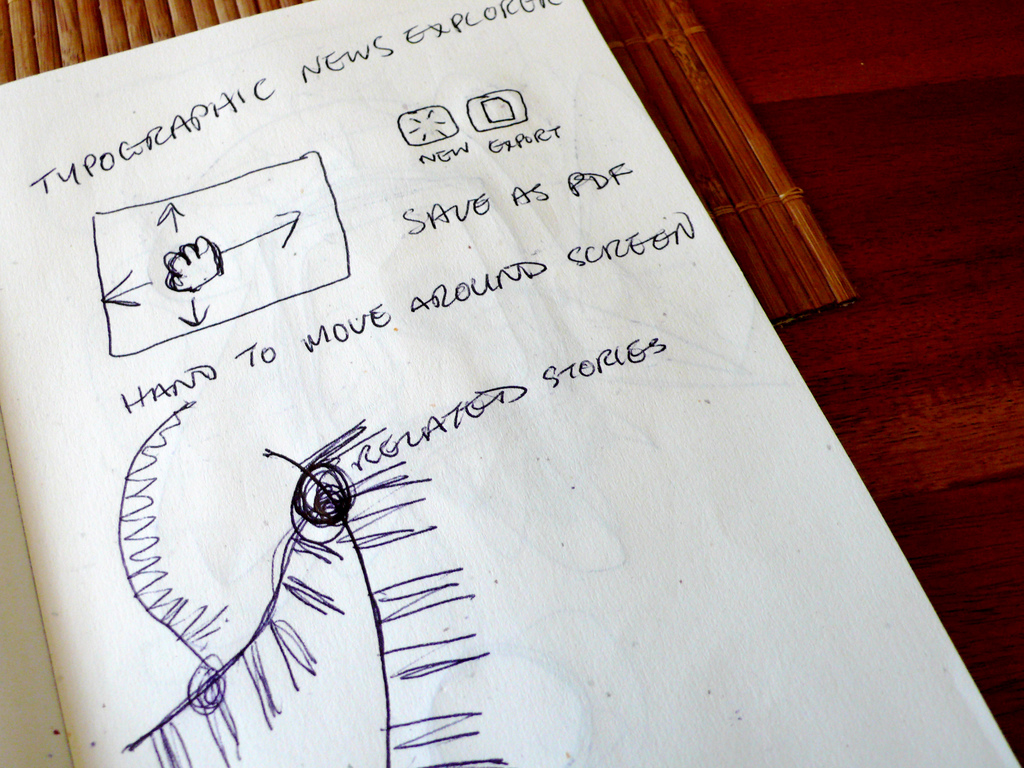 TYPOGRAPHIC NEWS EXPLORER
NEW EXPORT
SAVE AS PDF
HAND TO MOVE AROUND SCREEN
RELATED STORIES